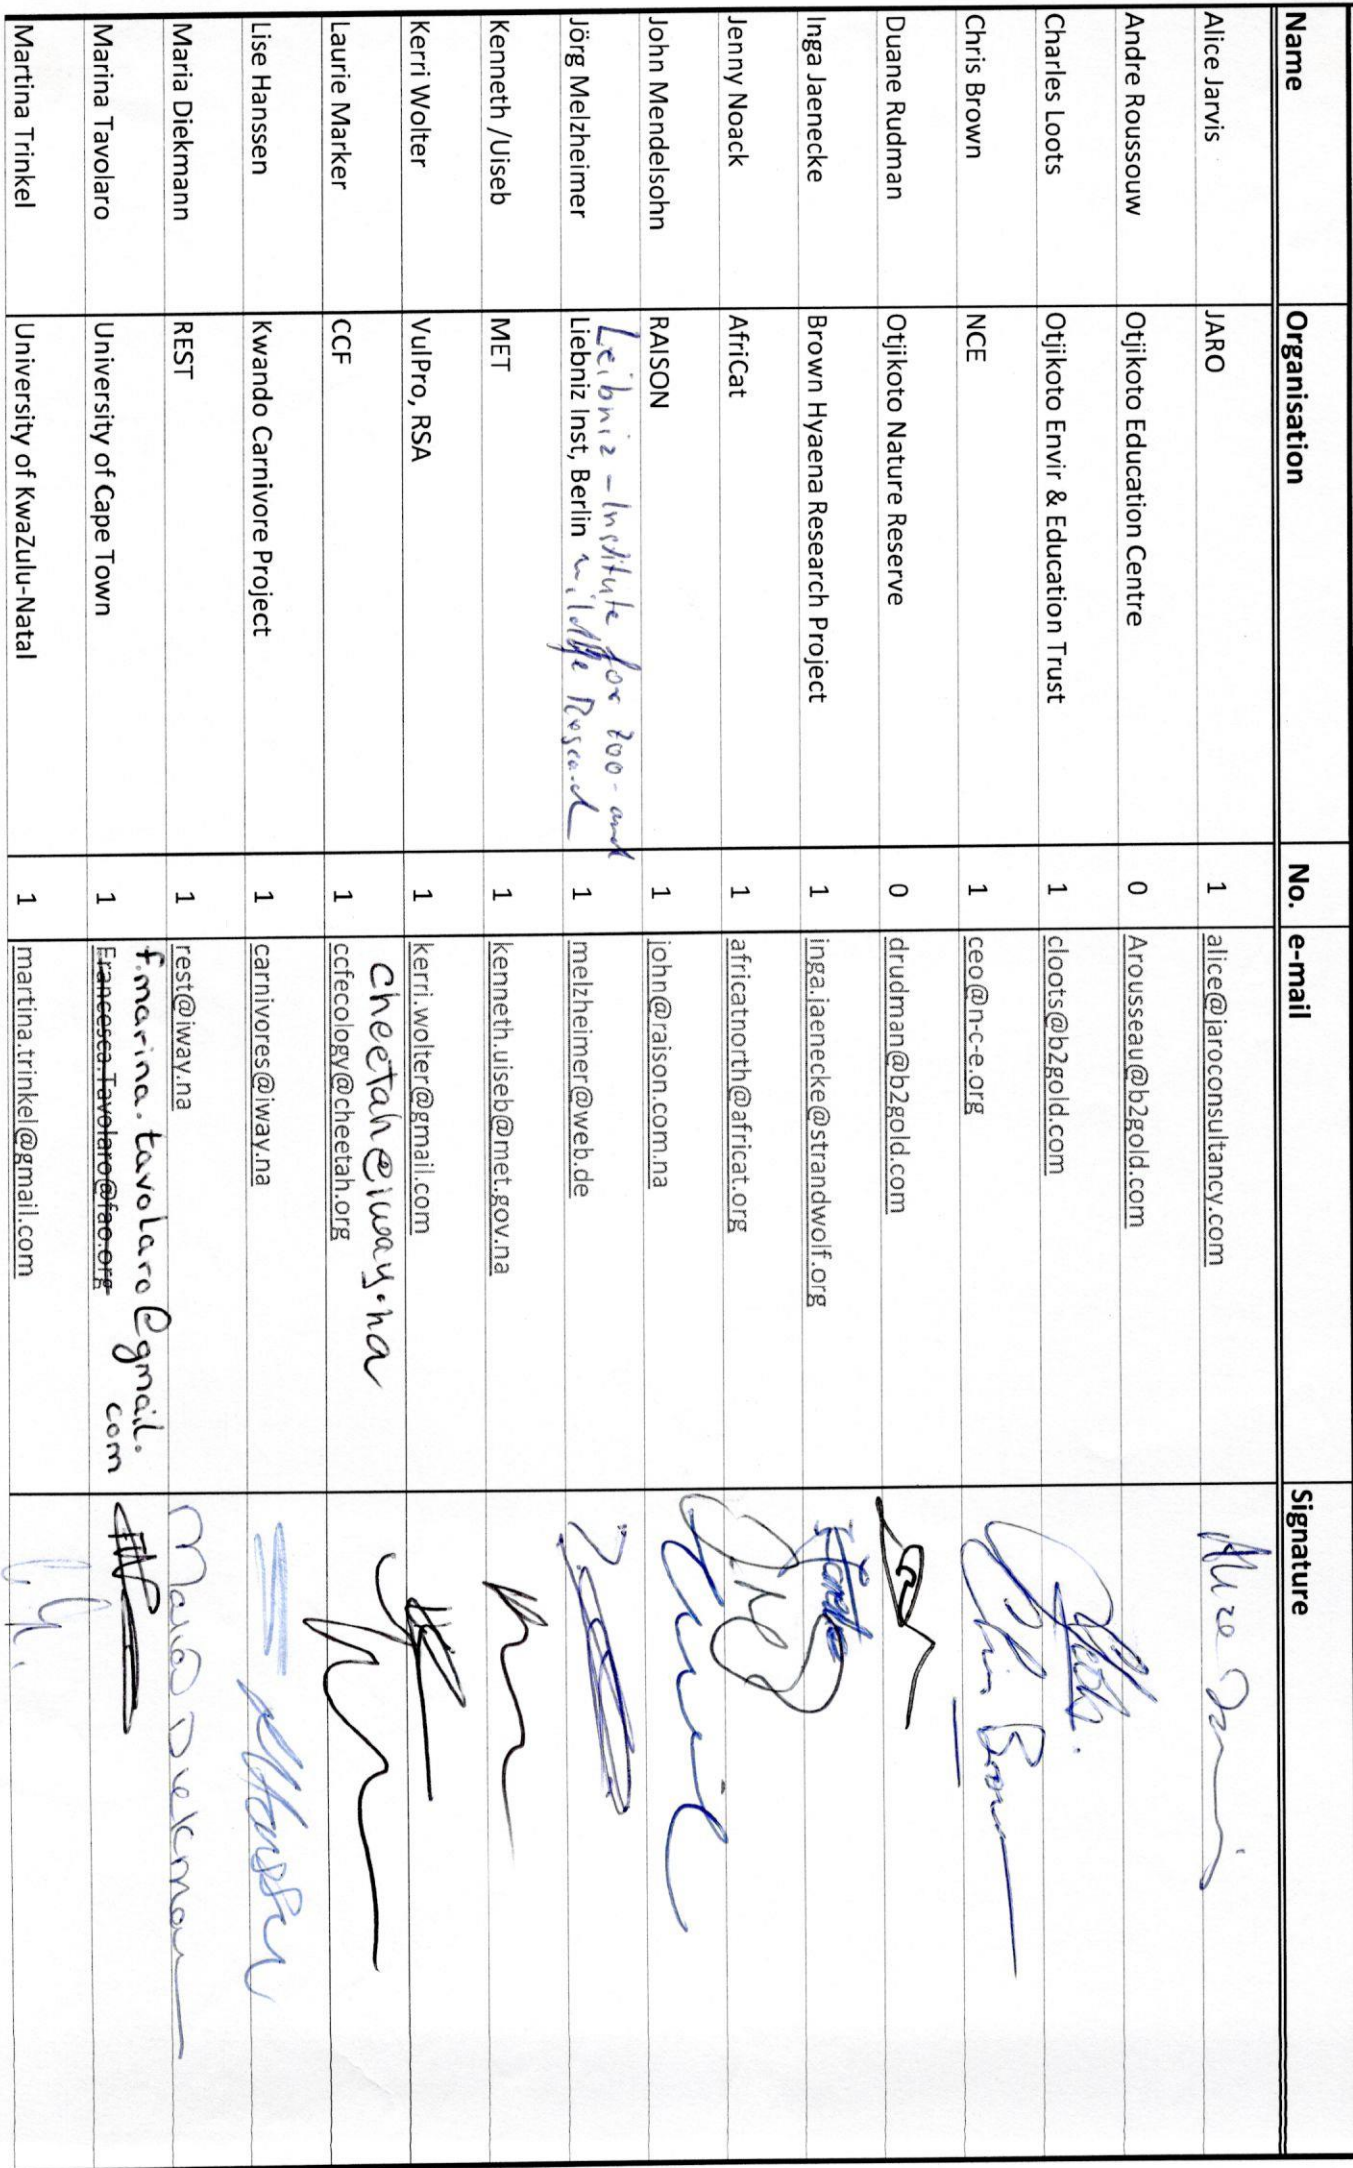 Name Organisation No. e-mail Signature
Alice Jarvis JARO 1 alice@jaroconsultancy.com Alice Jarvis
Andre Roussouw Otjikoto Education Centre 0 Arousseau@b2gold.com
Charles Loots Otjikoto Envir & Education Trust 1 cloots@b2gold.com
Chris Brown NCE 1 ceo@n-c-e.org Chris Brown
Duane Rudman Otjikoto Nature Reserve 0 drudman@b2gold.com
Inga Jaenecke Brown Hyaena Research Project 1 inga.jaenecke@strandwolf.org
Jenny Noack AfriCat 1 africatnorth@africat.org
John Mendelsohn RAISON 1 john@raison.com.na
Leibniz-Institute for Zoo- and
Jörg Melzheimer Liebniz Inst, Berlin wildlife Research 1 melzheimer@web.de
Kenneth /Uiseb MET 1 kenneth.uiseb@met.gov.na
Kerri Wolter VulPro, RSA 1 kerri.wolter@gmail.com
cheetah@iway.na
Laurie Marker CCF 1 ccfecology@cheetah.org
Lise Hanssen Kwando Carnivore Project 1 carnivores@iway.na
Maria Diekmann REST 1 rest@iway.na Maria Diekmann
f.marina.tavolaro@gmail.
com
Marina Tavolaro University of Cape Town 1 Francesca.Tavolaro@fao.org
Martina Trinkel University of KwaZulu-Natal 1 martina.trinkel@gmail.com